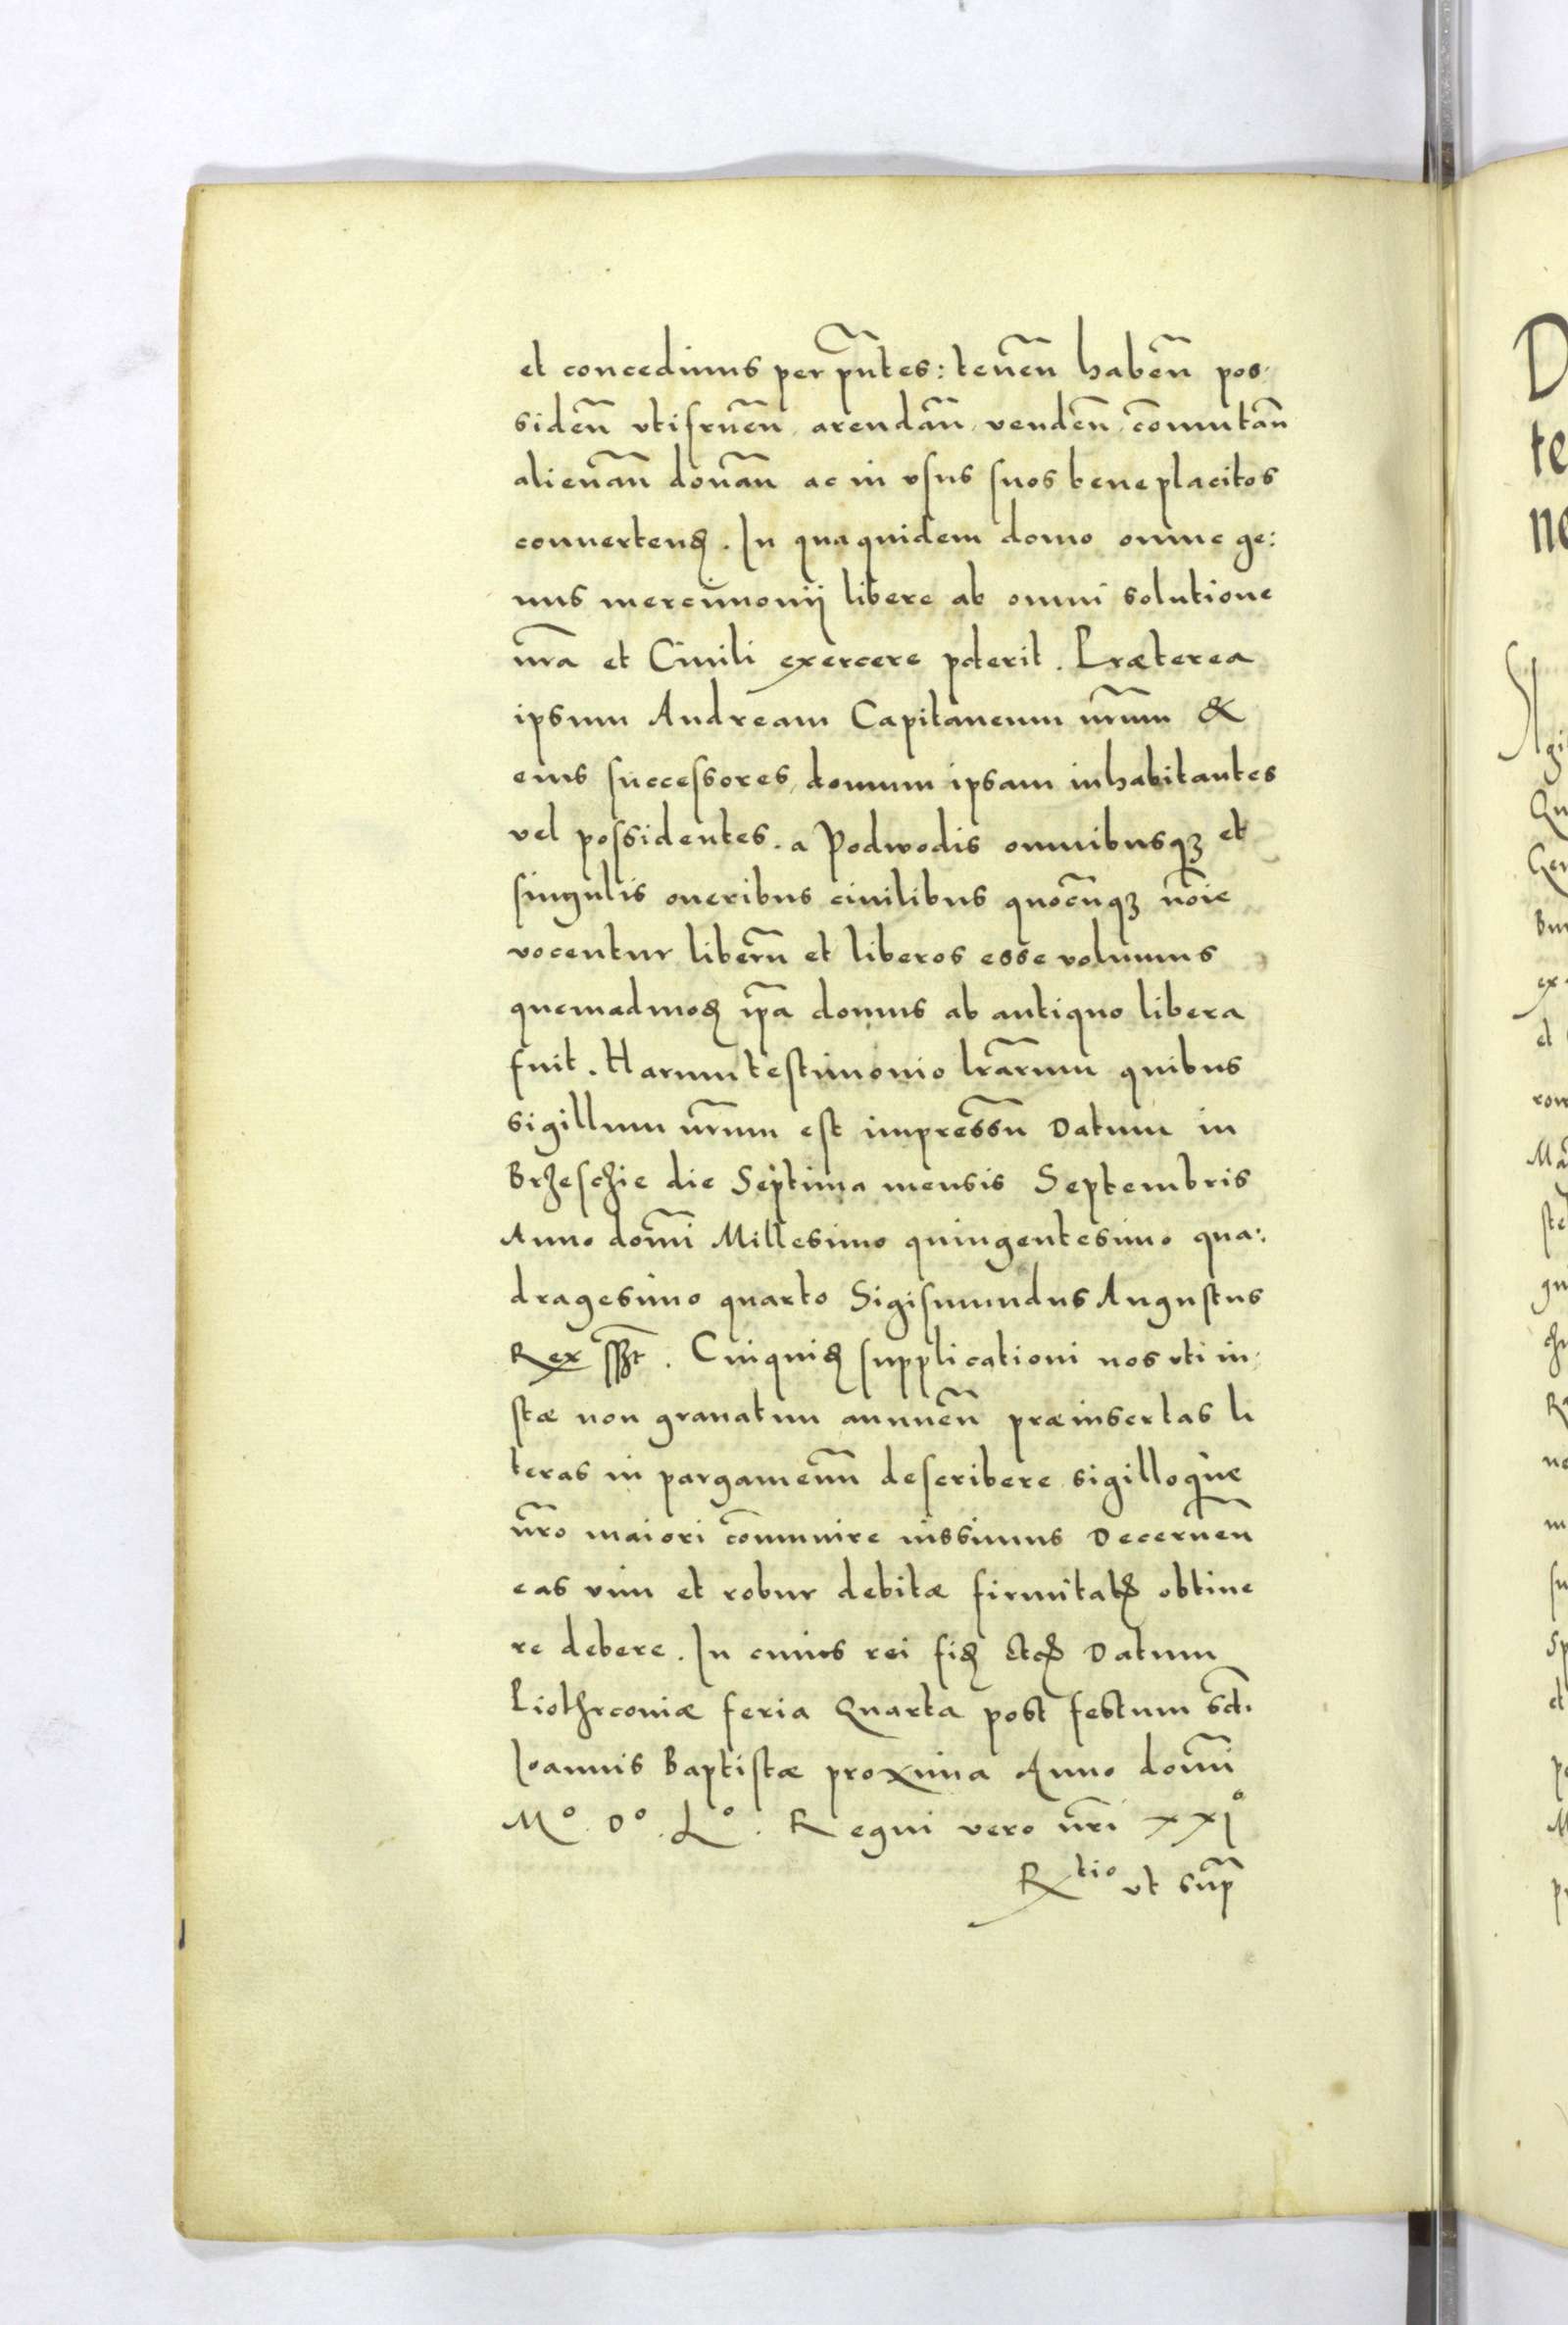 et concedimus per pñtes: teneñ habeñ pos-
sideñ vtifrueñ, arendañ, vendeñ, cõmutañ
alienañ donañ ac in vsus suos beneplacitos
conuerteñ. In qua quidem domo omne ge:
nus mercimonij libere ab omni solutione
nra et Ciuili exercere poterit. Præterea
ipsum Andream Capitaneum nrum &
eius successores, domum ipsam inhabitantes
vel possidentes. a Podwodis omnibusqꝫ et
singulis oneribus ciuilibus quocũqꝫ noie
vocentur liberũ et liberos esse volumus
quemadmoꝫ ipa domus ab antiquo libera
fuit. Harum testimonio lrarum quibus
sigillum nrum est impressũ Datum in
Brzesczie die Septima mensis Septembris
Anno domi Millesimo quingentesimo qua:
dragesimo quarto Sigismundus Augustus
Rex sszt. Cuiquiꝫ supplicationi nos vti iu-
stæ non grauatim annueñ præinsertas li
teras in pargameñũ describere sigilloque
nro maiori cõmunire iussimus Decerneñ
eas vim et robur debitæ firmitatꝭ obtine
re debere. In cuius rei fiꝫ etcꝭ Datum
Piothrconiæ feria Quarta post festum scti
Ioannis Baptistæ proxima Anno domi
Mº. Dº. Lº. Regni vero nri XXIº
Rtio vt sup
D
te
ne